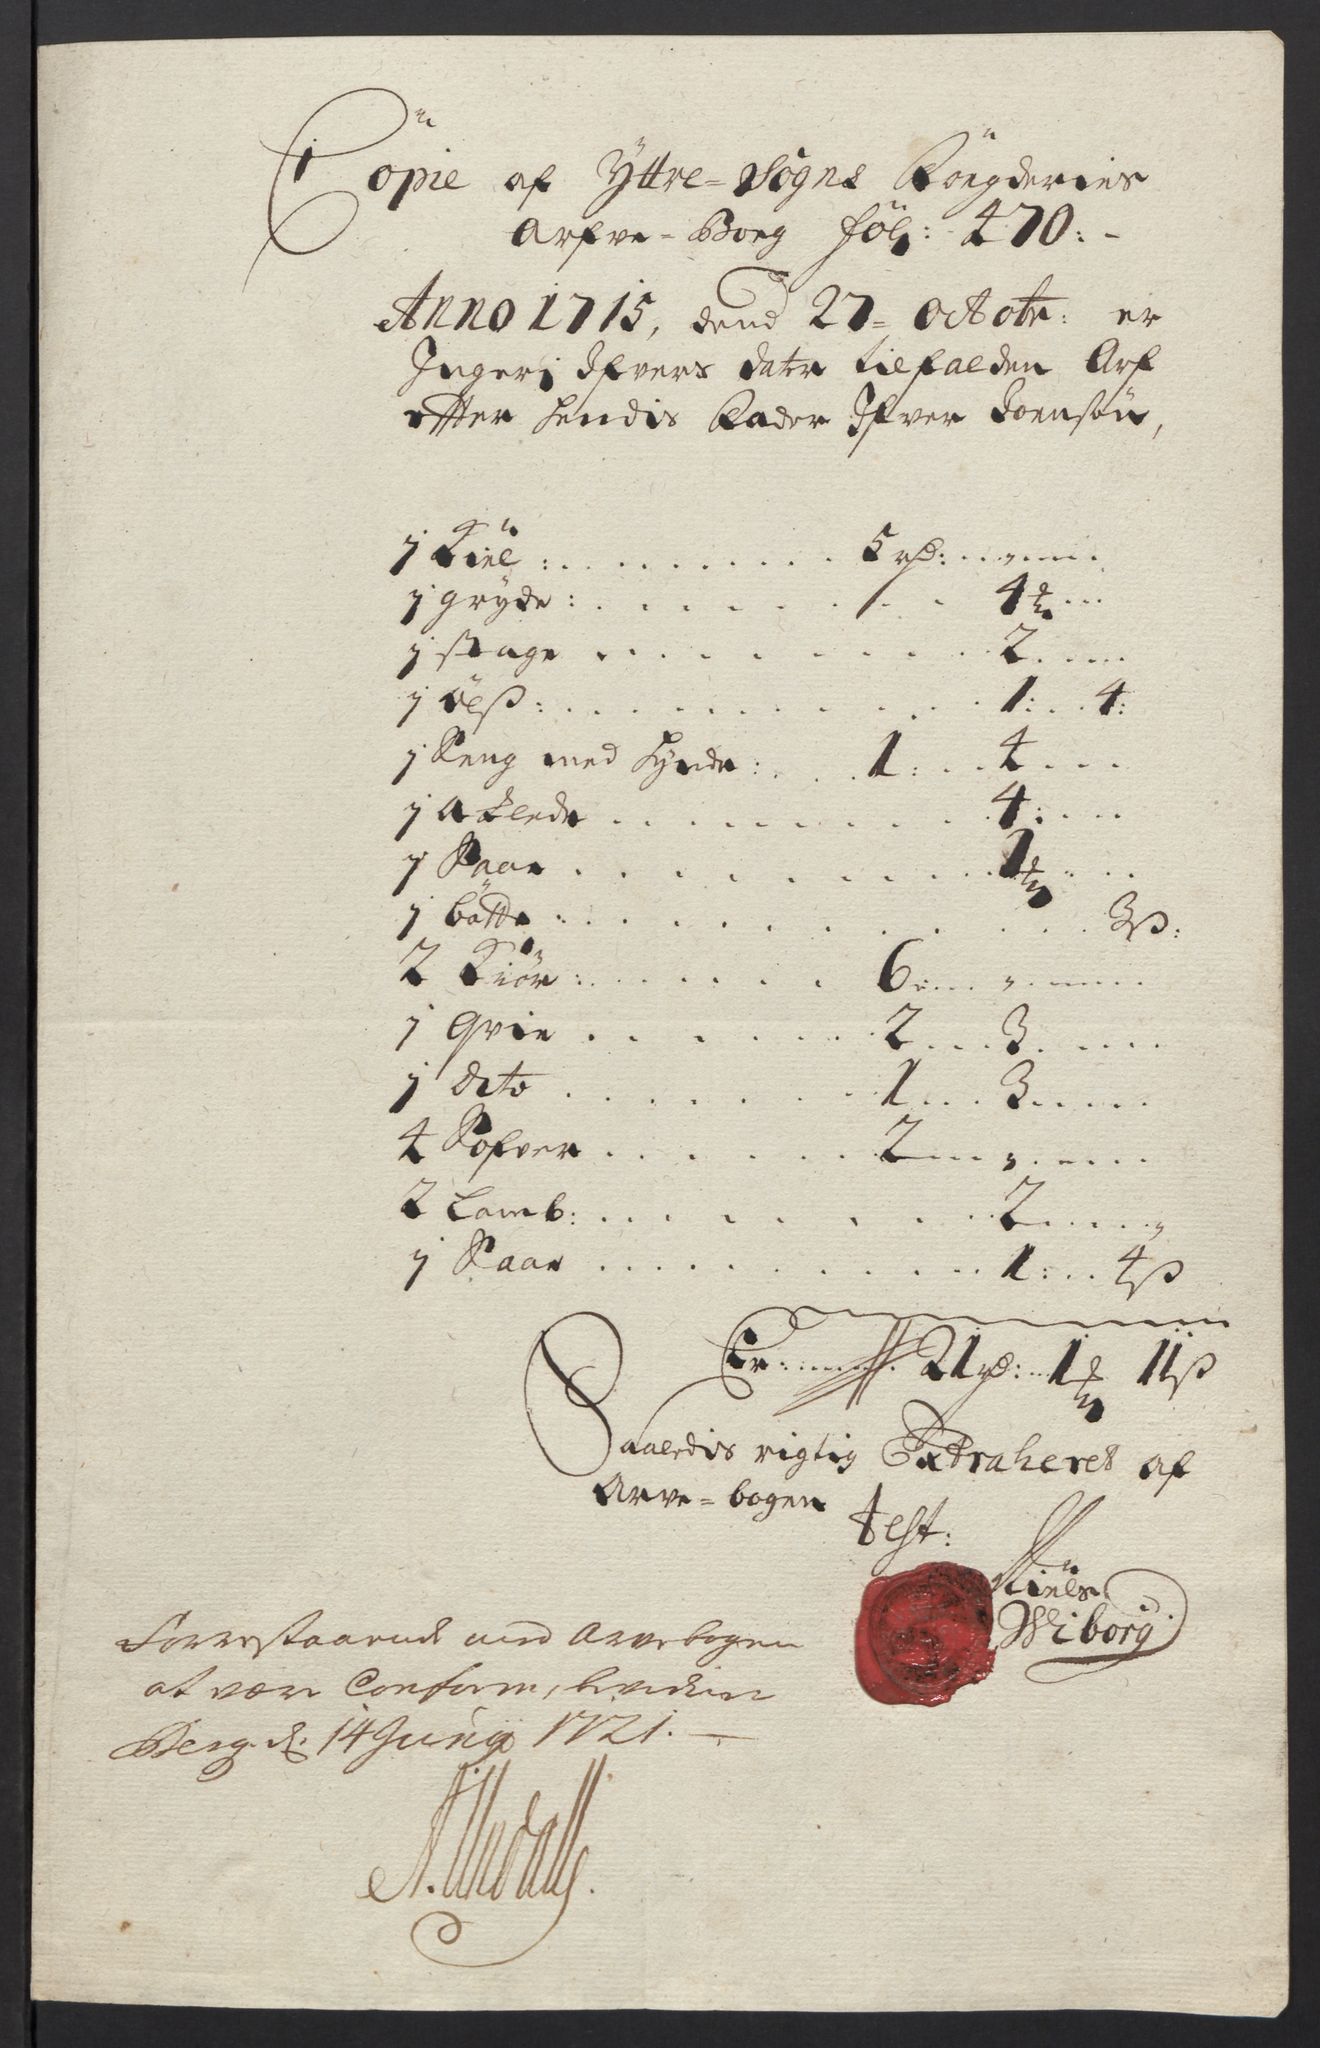 Copie af Yttre-Sogns Fougderies
Arfve-Boeg fol: 470:-
Anno 1715, dend 27= octobr: er
Ingeri Ifvers datr tilfalden Arf
efter hendis Fader Ifver Joensøn,
1 Kiel: 5 rd:
1 gryde: 4 m
1 stage 2
1 øls: 1: 4:
1 Seng med hynde: 1: 4
1 aklede 4:
1 Faar 1 m
1 bøtte: 3 s:
2 Kiør: 6
1 qvie 2 3
1 dito 1 3
4 Sofver 2
2 Lamb: 2
1 Faar 1: 4 s
Er: 21 rd: 1 m 11 s
Saaledis rigtig Extraheret af
Arve=bogen
test:
Niels
Wiborg
Forrestaaende med Arvebogen
at være Conform, bevidner
Berg. d. 14 Junij 1721.